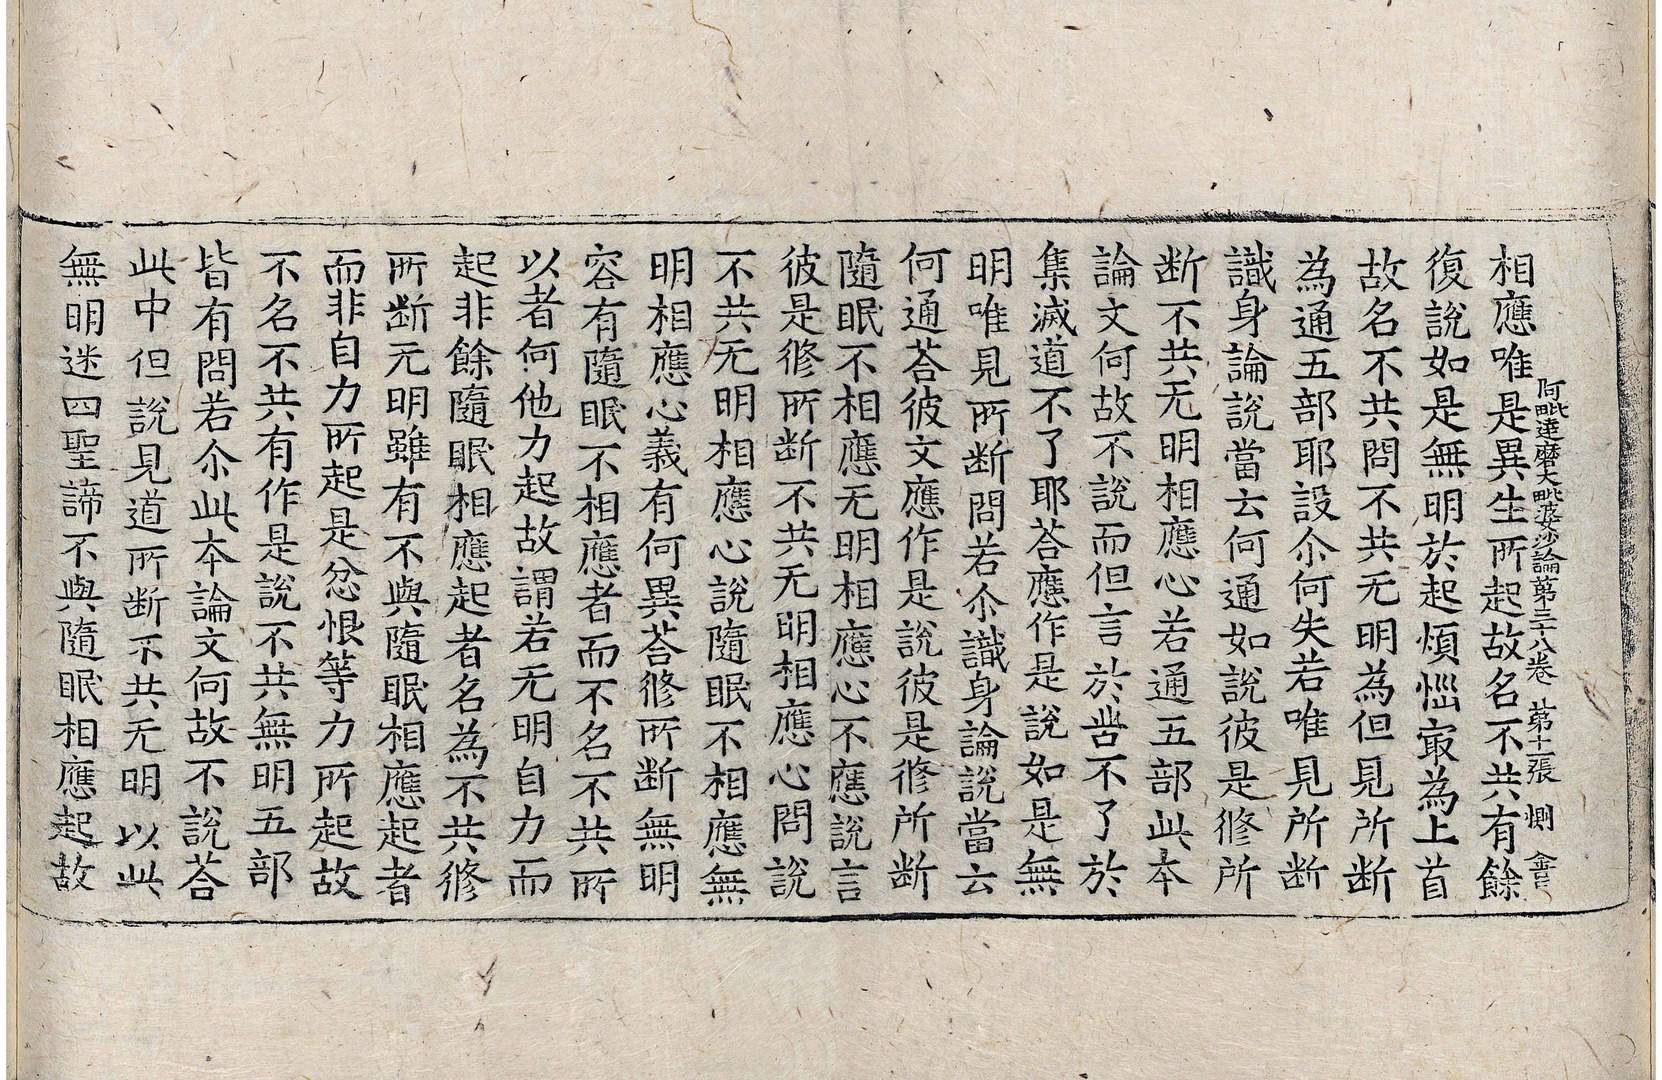 阿毗達磨大毗婆沙論第三十八卷　第十張　惻
相應唯是異生所起故名不共有餘
復說如是無明於起煩惱㝡為上首
故名不共問不共无明為但見所断
為通五部耶設尒何失若唯見所断
識身論說當云何通如說彼是修所
断不共无明相應心若通五部此本
論文何故不說而但言於苦不了於
集滅道不了耶荅應作是說如是無
明唯見所断問若尒識身論說當云
何通荅彼文應作是說彼是修所断
隨眠不相應无明相應心不應說言
彼是修所断不共无明相應心問說
不共无明相應心說隨眠不相應無
明相應心義有何異荅修所断無明
容有隨眠不相應者而不名不共所
以者何他力起故謂若无明自力而
起非餘隨眠相應起者名為不共修
所断无明雖有不與隨眠相應起者
而非自力所起是忿恨等力所起故
不名不共有作是說不共無明五部
皆有問若尒此本論文何故不說荅
此中但說見道所断不共无明以此
無明迷四聖諦不與隨眠相應起故